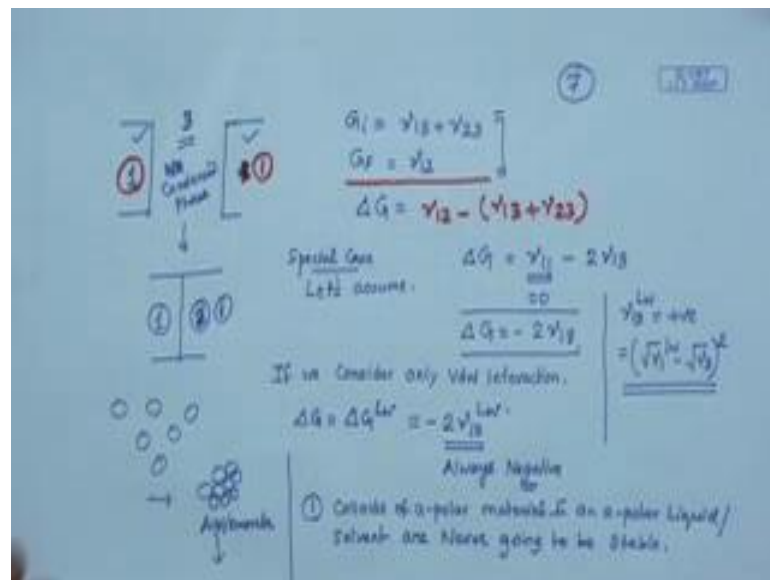 7
3
1
1
Condensed
Phase
Gi = γ13 + γ23
GF = γ12
ΔG = γ12 - (γ13 + γ23)
Special Case
Lets assume.
ΔG = γ11 - 2γ13
=0
ΔG = - 2γ13
γ13^LW = +ve
= (√γ1^LW - √γ3)^2
1 2 1
If we Consider only VdW interaction.
ΔG = ΔG^LW = - 2γ13^LW.
Always Negative
Agglomerate
1 Colloids of a-polar material in an a-polar Liquid/
Solvent are Never going to be Stable.